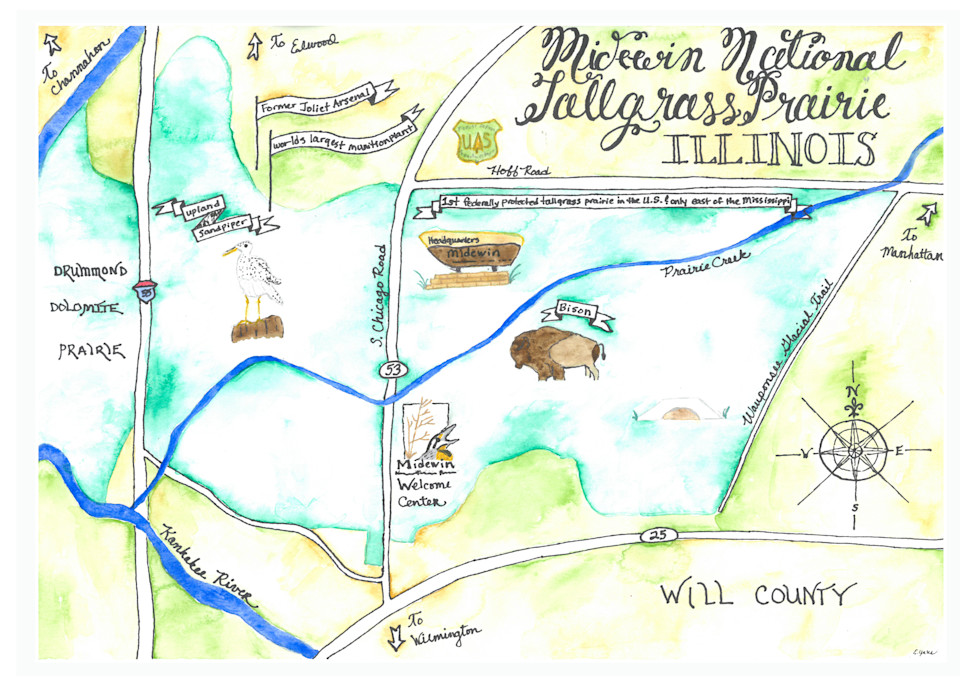 Midewin National
Tallgrass Prairie
ILLINOIS
To
Channahon
To Elwood
Former Joliet Arsenal
world's largest munition plant
UAS
Hoff Road
1st federally protected tallgrass prairie in the U.S. & only east of the Mississippi
upland
Sandpiper
Headquarters
midewin
To
Manhattan
DRUMMOND
DOLOMITE
PRAIRIE
55
S. Chicago Road
Prairie Creek
Bison
Wauponsee Glacial Trail
53
Midewin
Welcome
Center
N
W
E
S
Kankekee River
25
WILL COUNTY
To
Wilmington